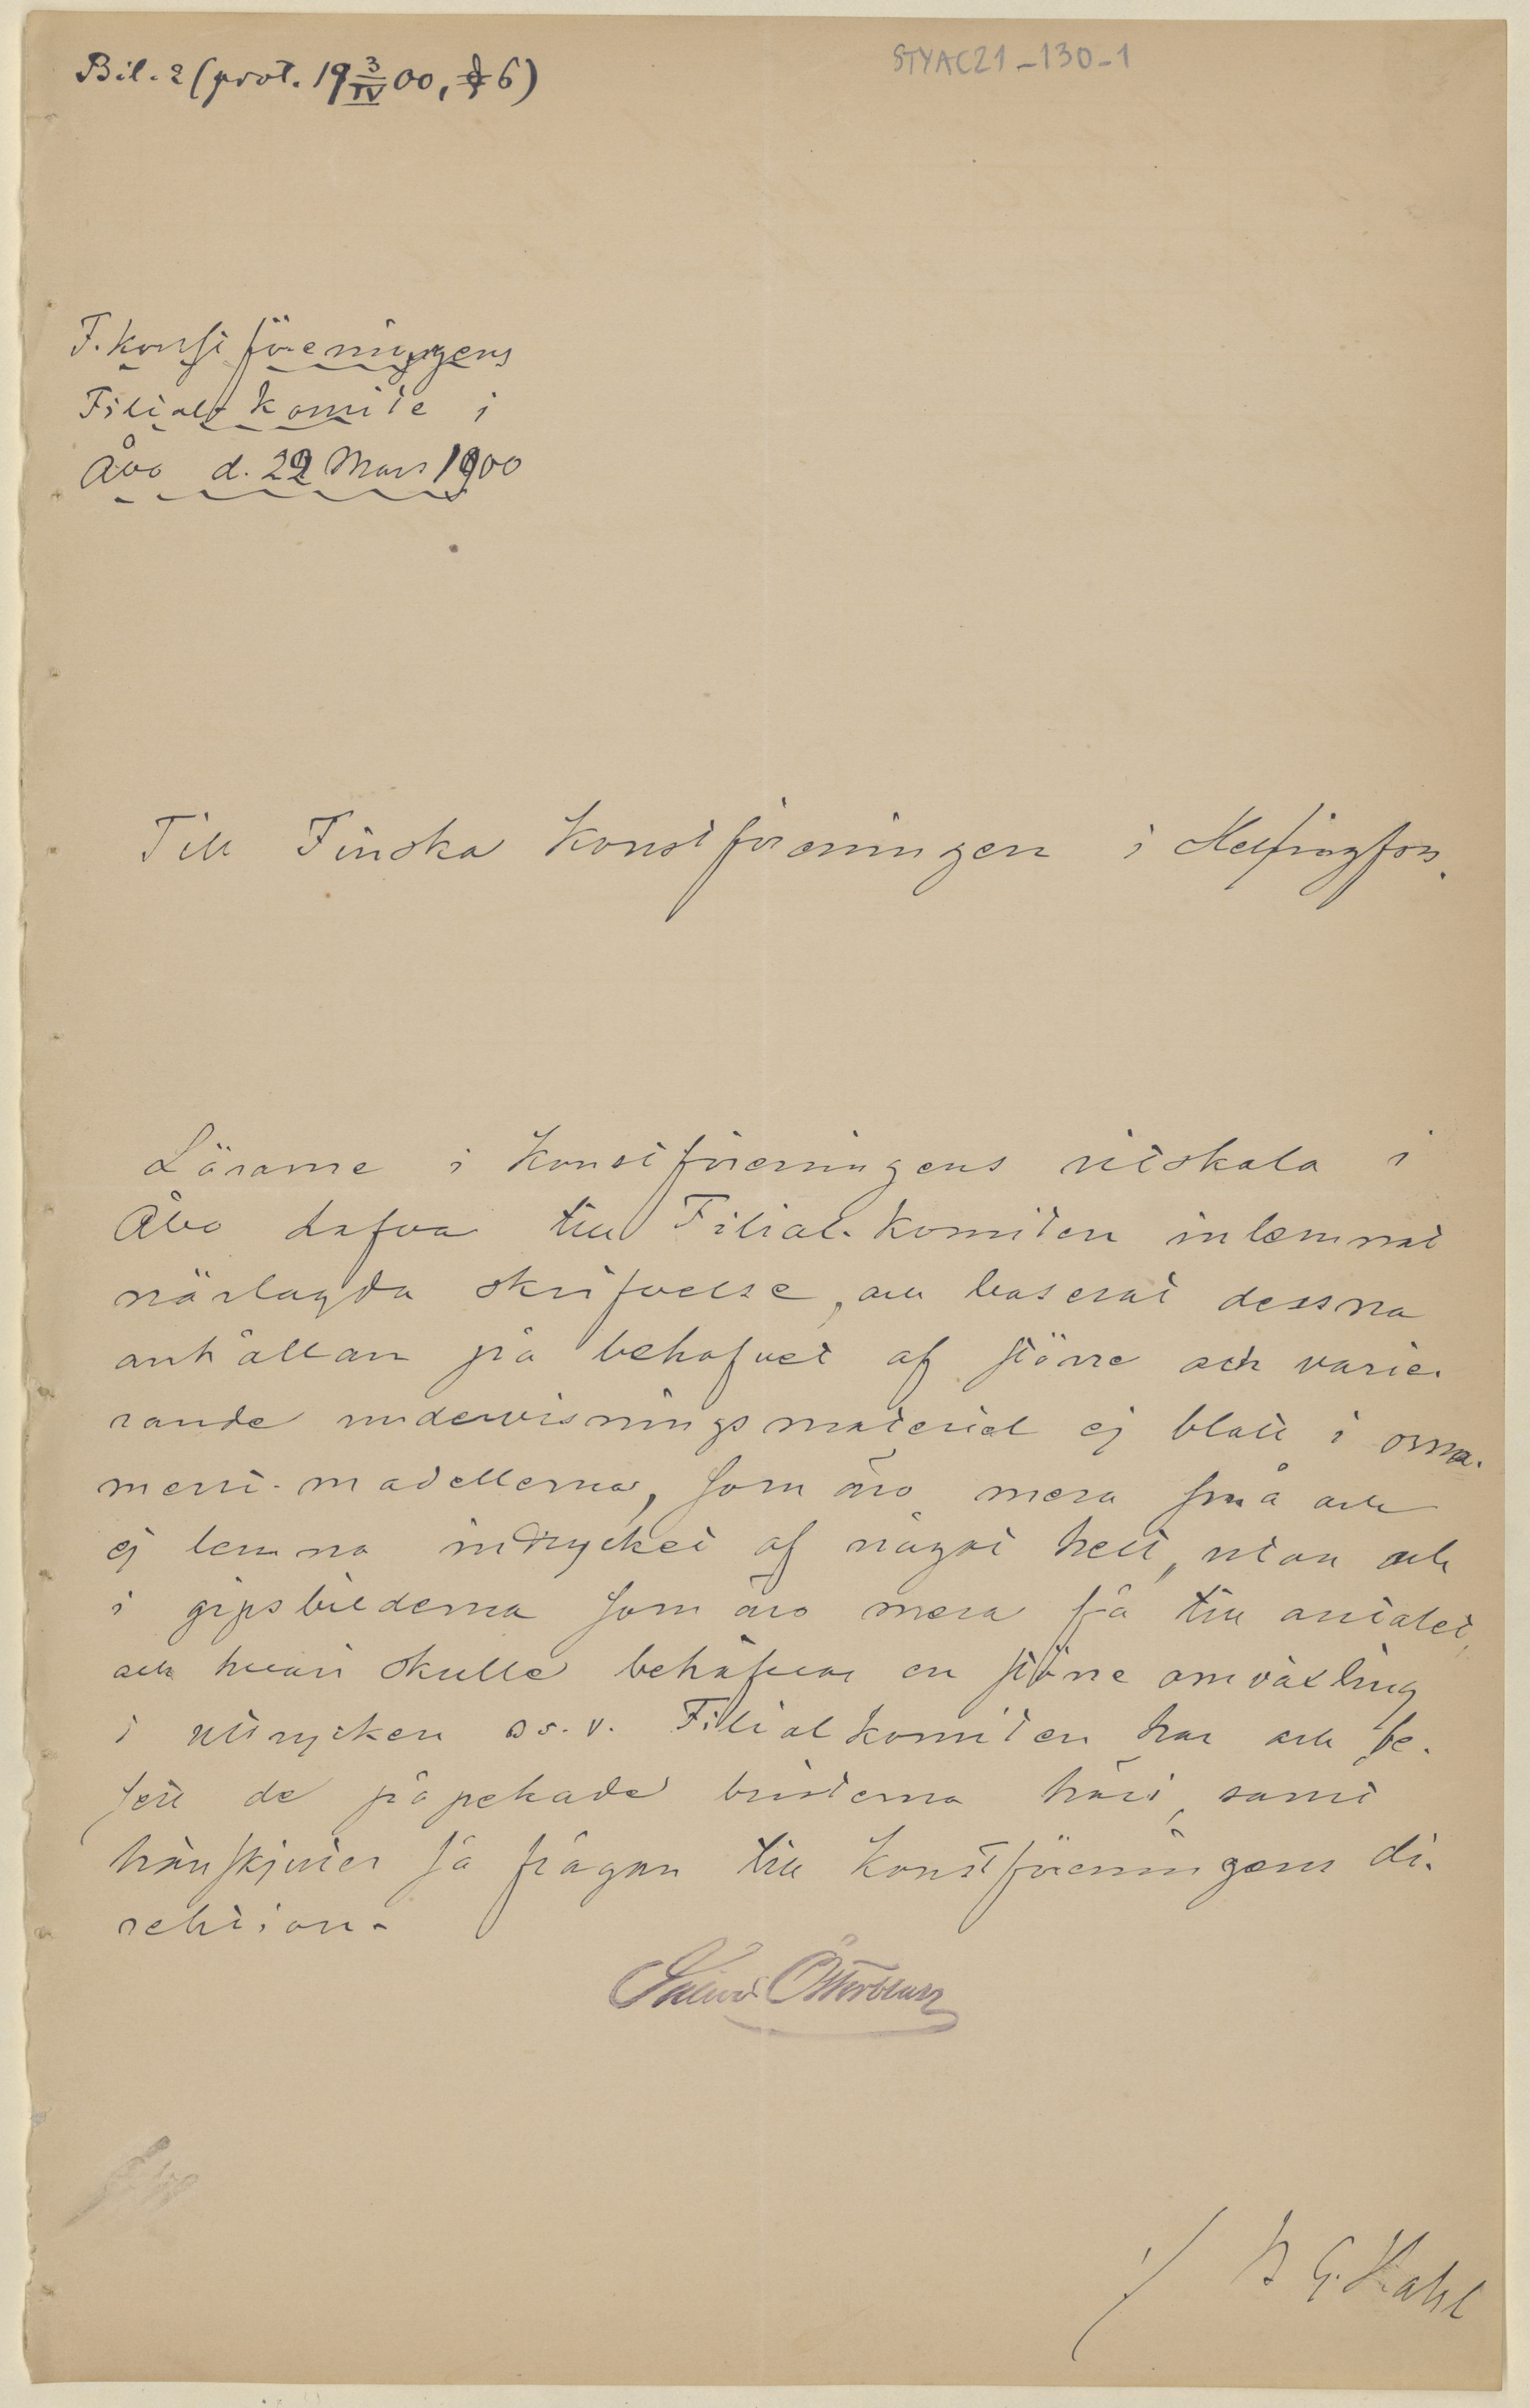 Bil. 2 (prot. 19 3/IV 00, § 6)
STYAC21-130-1
F. Konstföreningens
Filial-Komite i
Åbo d. 22 Mars 1900
Till Finska Konstföreningen i Helsingfors.
Lärarne i Konstföreningens ritskola i
Åbo hafva till Filial-Komiten inlemnat
närlagda skrifvelse, och baserat dessna
anhållan på behofvet af större och varie-
rande undervisningsmaterial ej blott i orna-
ment-modellerna, som äro mera små och
ej lemna intrycket af något helt, utan och
i gipsbilderna som äro mera få till antalet,
och hvari skulle behöfvas en större omväxling
i uttrycken o.s.v. Filialkomiten har och be-
sett de påpekade bristerna häri, samt
hänskjuter så frågan till Konstföreningens di-
rektion.
Österblom
/ G. Hahl